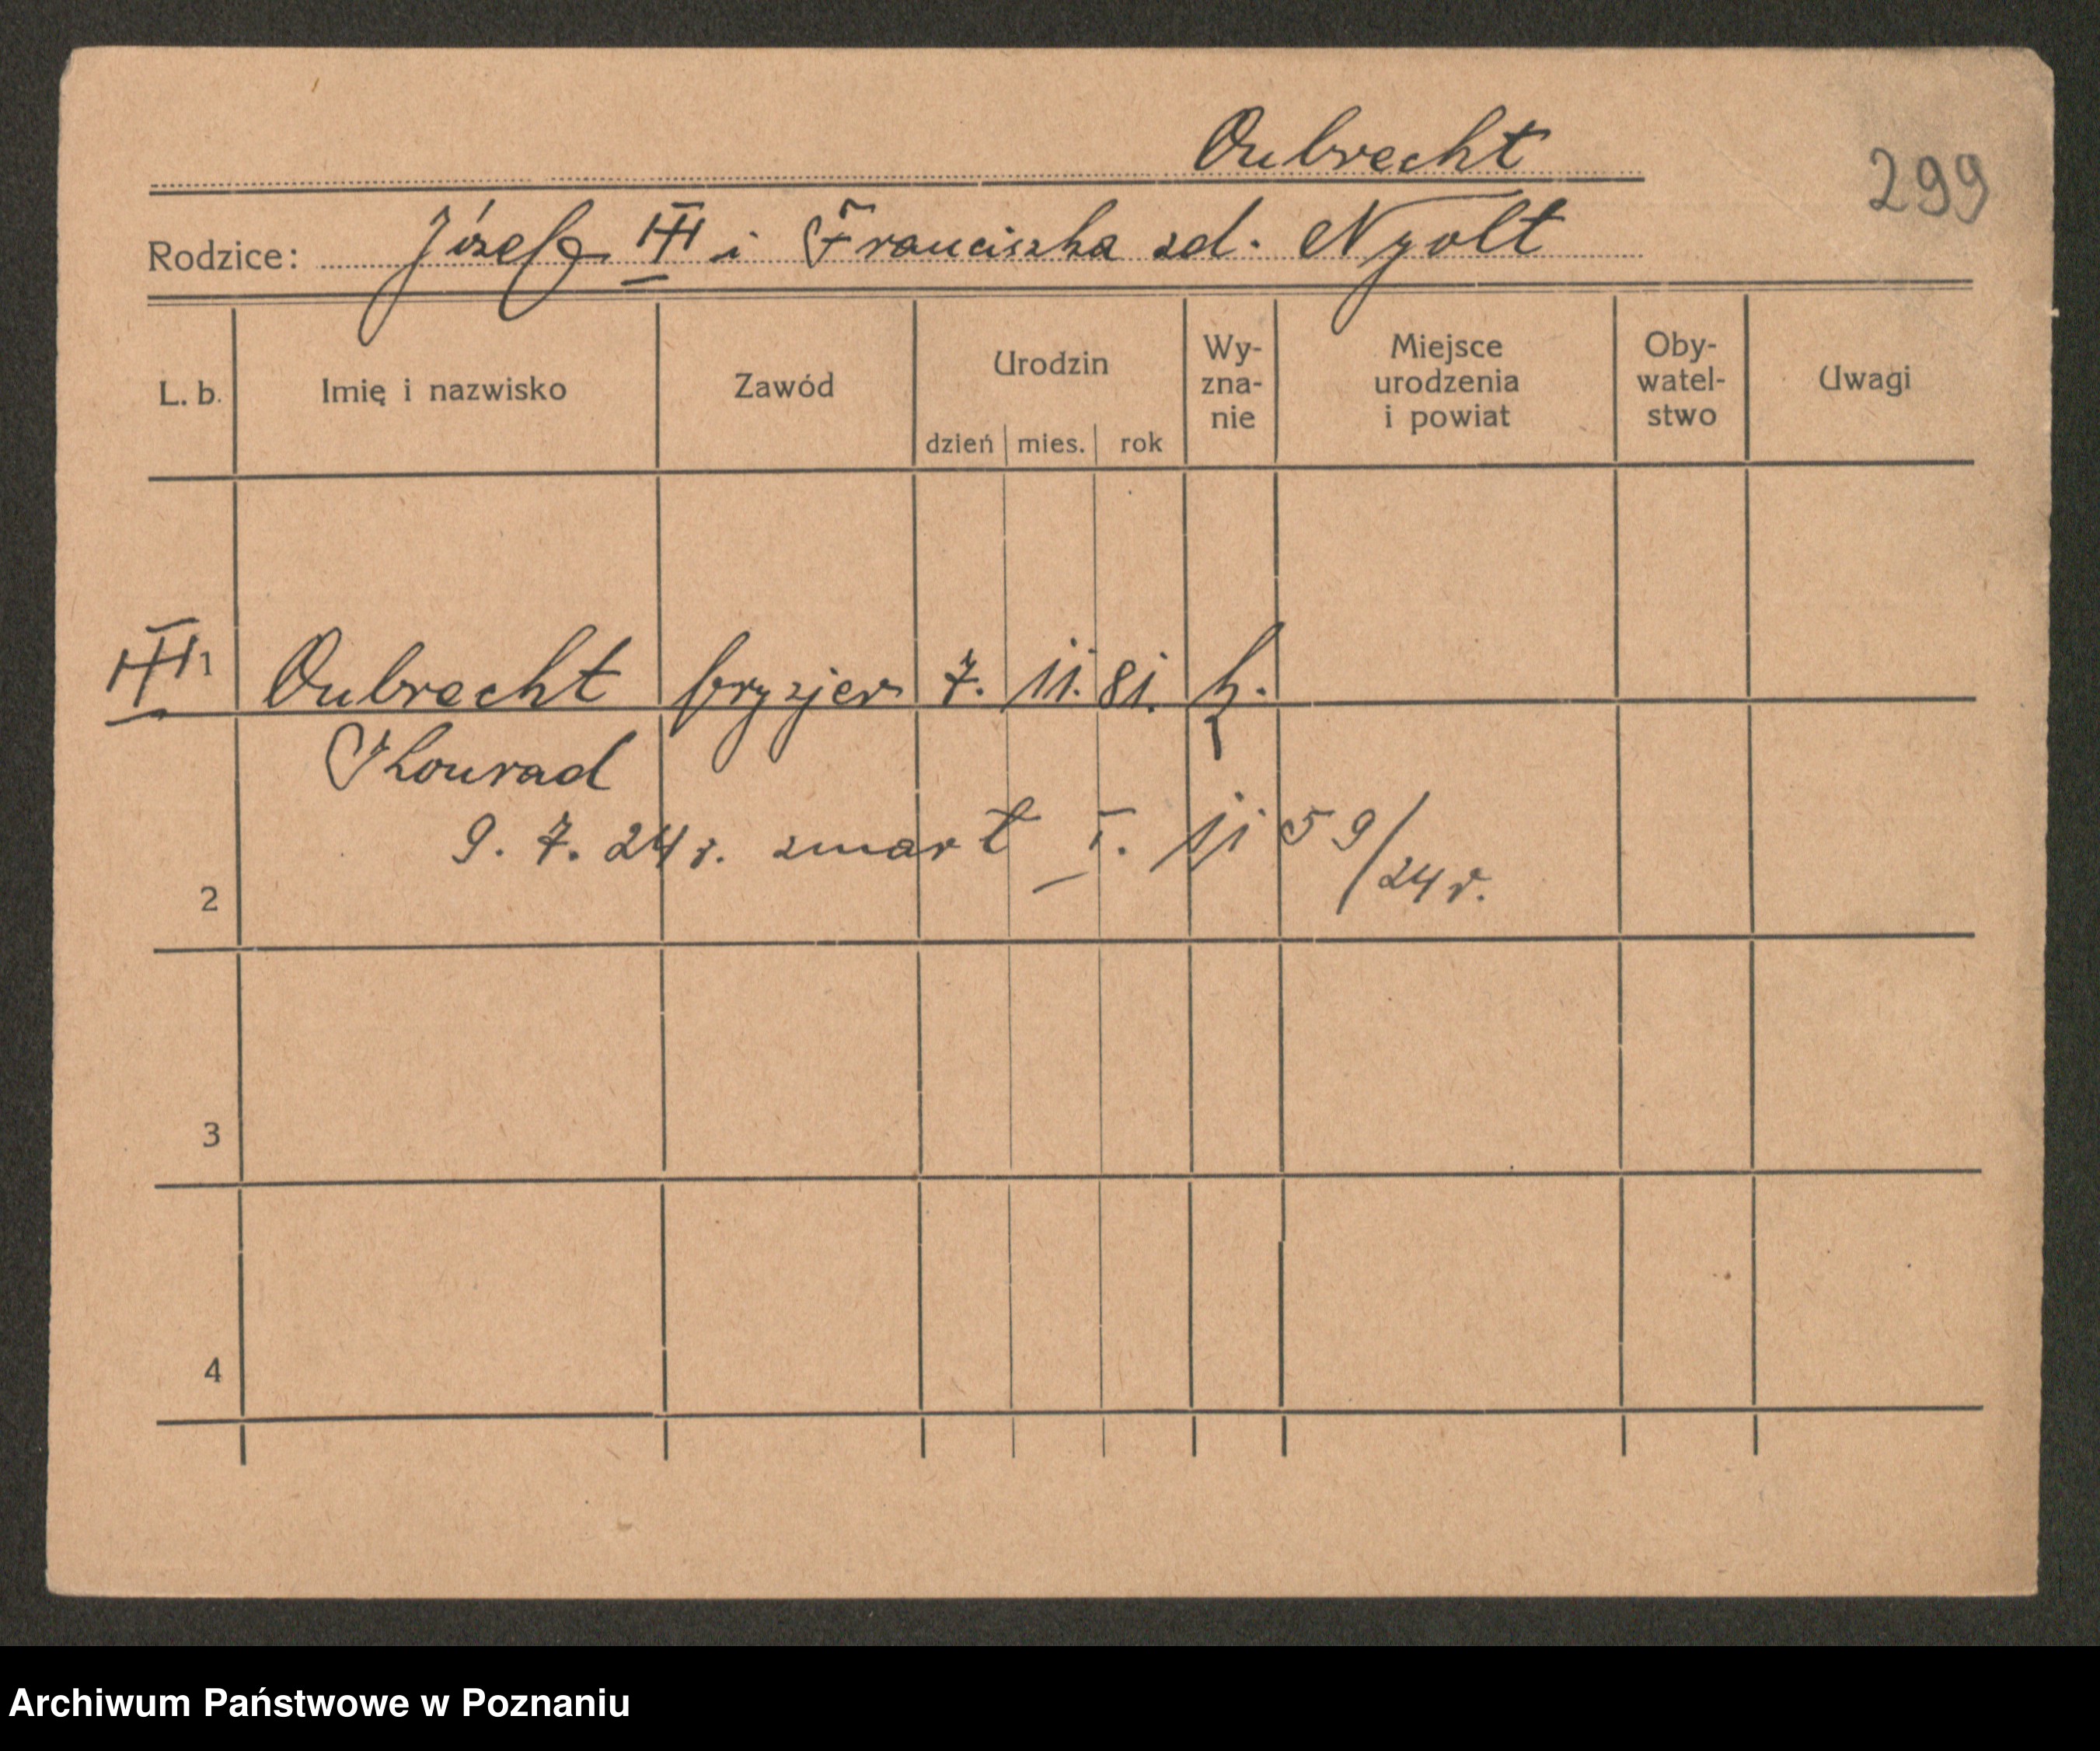 Oubrecht
299
Rodzice: Józef i Franciszka zd. Nyolt
L. b. Imię i nazwisko Zawód Urodzin dzień mies. rok Wy-zna-nie Miejsce urodzenia i powiat Oby-watel-stwo Uwagi
1 Oubrecht fryzjer 7. 11. 81. k.
Konrad
9. 7. 24 r. zmarł I. 1159/24 r.
2
3
4
Archiwum Państwowe w Poznaniu